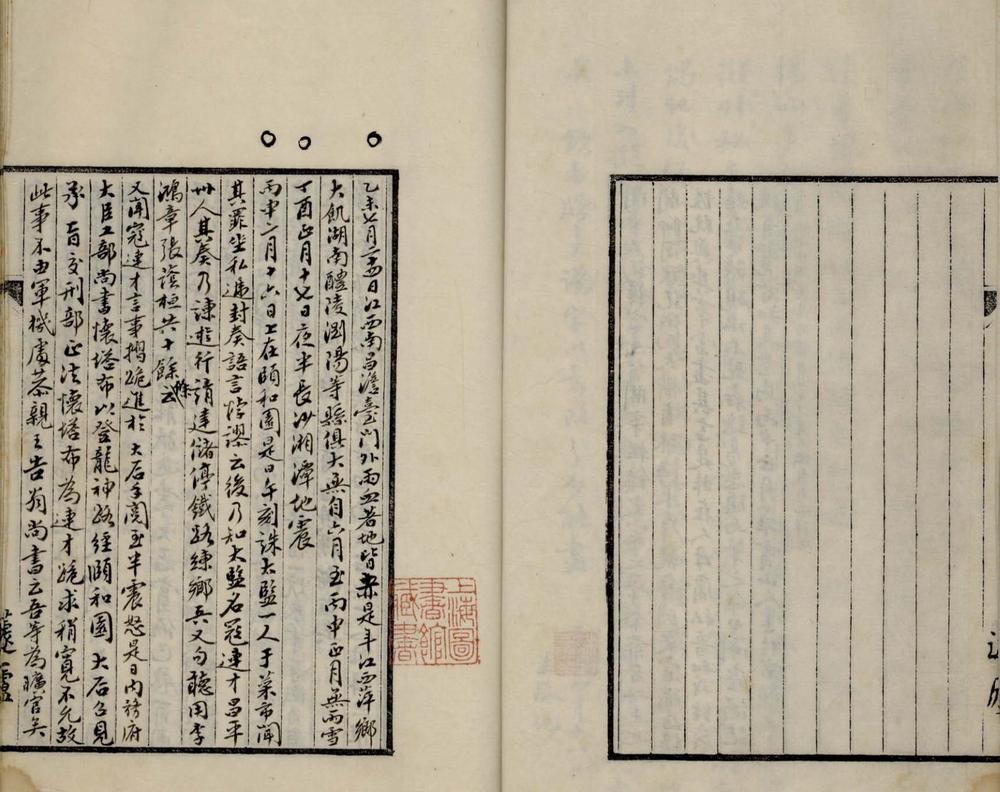 乙未七月二十四日江西南昌澹臺門外雨血著地皆赤是年江西萍鄉
大飢湖南醴陵瀏陽等縣俱大無自六月至丙申正月無雨雪
丁酉正月十七日夜半長沙湘潭地震
丙申二月十六日上在頤和園是日午刻誅太監一人于菜市聞
其罪坐私遞封奏語言悖謬云後乃知太監名寇連才昌平
州人其奏乃諫遊行請建儲停鐵路練鄉兵又勿聽用李
鴻章張蔭桓共十餘條云
又聞寇連才言事摺跪進於太后手閱至半震怒是日內務府
大臣工部尚書懷塔布以登龍神路經頤和園太后召見
承旨交刑部正法懷塔布為連才跪求稍寬不允故
此事不由軍機處恭親王告翁尚書云吾等為曠官矣
上海圖
書館
藏書